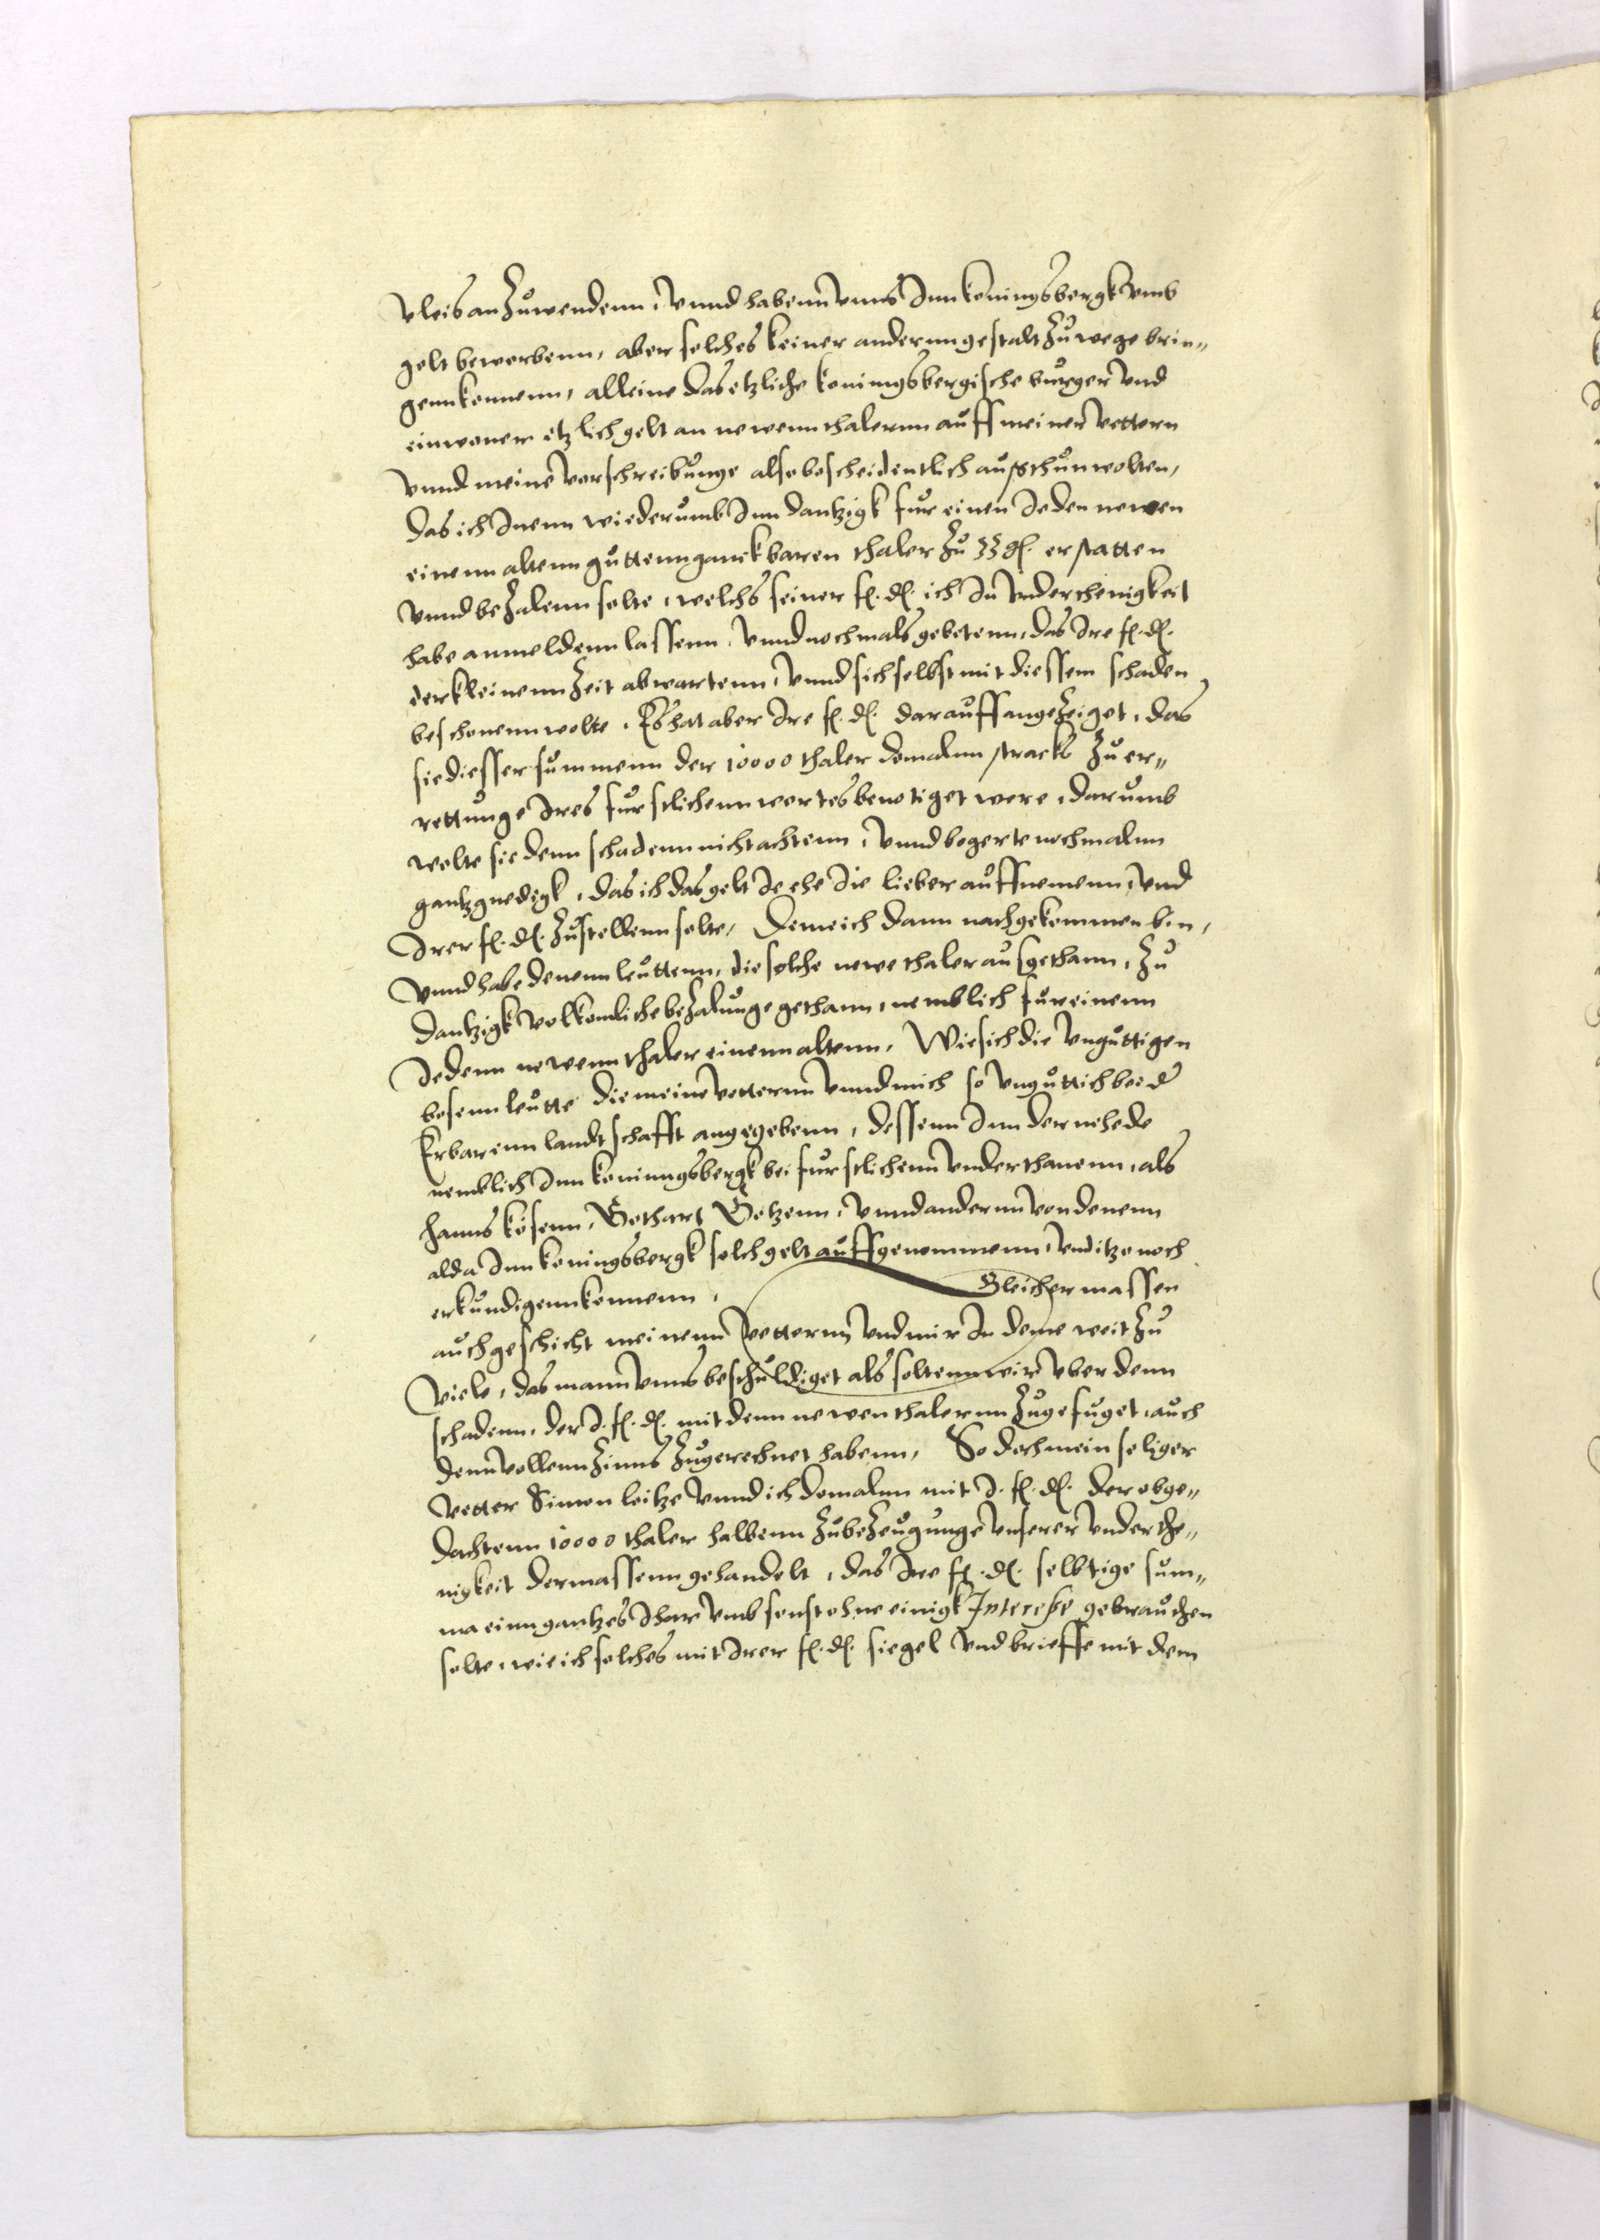 vleis anzuwendenn, vnnd habenn vnns Inn koningsbergk vmb
gelt beworbenn, aber solches keiner andernn gestalt zuwege brin„
genn konnenn, alleine das etzliche koningsbergische burger vnd
einwoner etzlich gelt an newenn thalernn auff meiner vettern
vnnd meine vorschreibunge also bescheidentlich austhun wolten,
das ich Inenn wiederumb Inn dantzigk fur einen Jeden newen
einenn altenn guttenn ganckbaren thaler zu 33 gl. erstatten
vnnd bezalenn solte, welchs seiner fl. dl. ich In vnderthenigkeit
habe anmeldenn lassenn, vnnd nochmals gebetenn, das Ire fl. dl.
der kleinenn zeit abwartenn, vnnd sich selbst mit diessem schaden
beschonenn wolte. Es hat aber Ire fl. dl. darauff angezeiget, das
sie diesser summenn der 10000 thaler domalnn stracks zu er„
rettunge Ires furstlichenn wortes benotiget were, darumb
wolte sie denn schadenn nicht achtenn, vnnd begerte nochmalnn
gantz gnedigk, das ich das gelt Je ehe Die lieber auffnemenn, vnd
Irer fl. dl. zustellenn solte, Deme ich dann nachgekommen bin,
vnnd habe denenn leuttenn, die solche newe thaler ausgethann, zu
dantzigk volkomliche bezalunge gethann, nemblich fur einenn
Jedenn newenn thaler einenn altenn. Wie sich die vnguttigen
bosenn leutte die meine vetternn vnnd mich so vnguttich bei der
Erbarenn landtschafft angegebenn, dessenn Inn der nehede
nemblich Inn koningsbergk bei furstlichenn vnderthanenn, als
hanns kosenn, Gothart Gotzenn, vnnd andernn von denenn
alda Inn koningsbergk solch gelt auffgenommenn, vnd itze noch
erkundigenn konnenn. Gleicher massen
auch geschicht meinenn vetternn vnd mir In deme weit zu
viele, das mann vnns beschuldiget als soltenn wir vber denn
schadenn, der I. fl. dl. mit denn newen thalernn zugefuget, auch
denn vollenn zinns zugerechnet habenn, So doch mein seliger
vetter Simon leitze vnnd ich domalnn mit I. fl. dl. der obge„
dachtenn 10000 thaler halbenn zubezeugunge vnserer vnderthe„
nigkeit dermassenn gehandelt, das Ire fl. dl. selbtige sum„
ma einn gantzes Ihar vmb sonst ohne einigk Interesse gebrauchen
solte, wie ich solches mit Irer fl. dl. siegel vnd brieffe mit dem